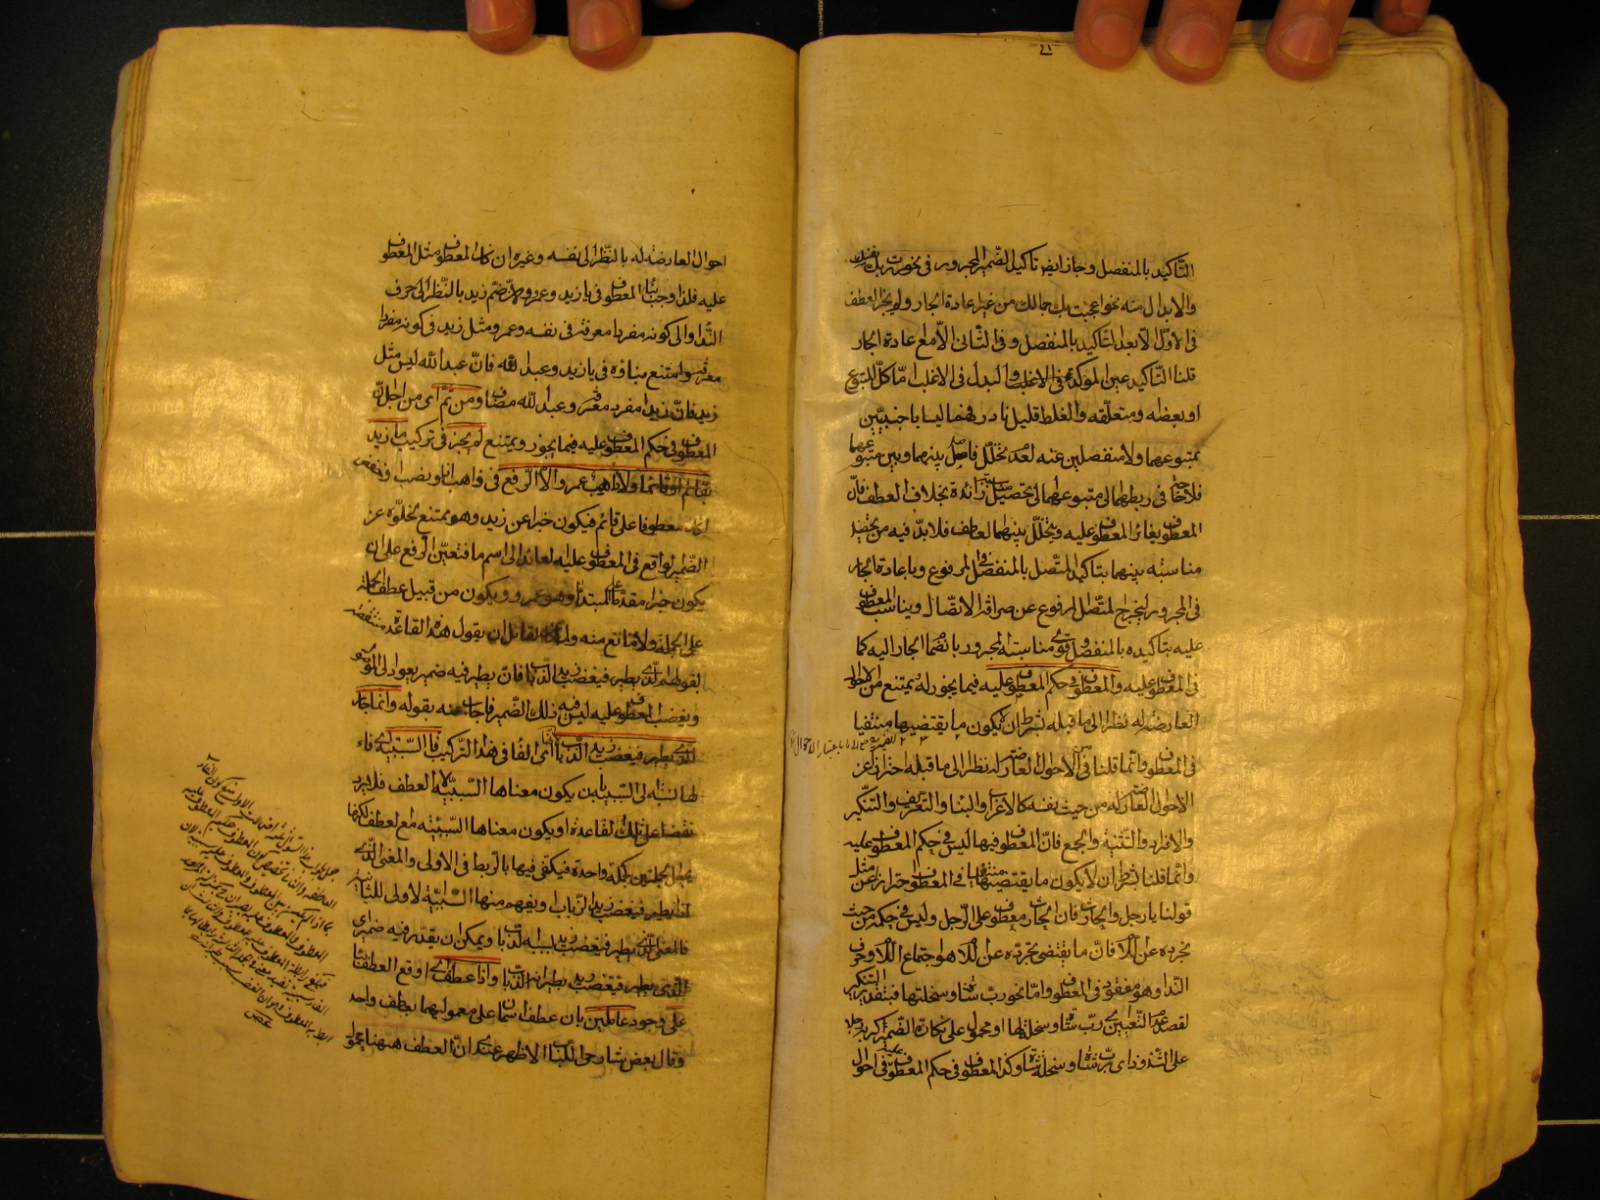 ٤١
التاكيد بالمنفصل وجاز ايضا تاكيد الضمير المجرور في نحو مررت بك نفسك
والابدال منه نحو اعجبت بك جمالك من غير اعادة الجار ولم يجز العطف
في الاول الا بعد التاكيد بالمنفصل وفي الثاني الا مع اعادة الجار
قلنا التاكيد عين المؤكد والبدل في الاغلب اما كل المتبوع
او بعضه او متعلقه والغلط قليل نادر فهما ليسا باجنبيين
لمتبوعهما ولا منفصلين عنه لعدم تخلل فاصل بينهما وبين متبوعهما
فلا حاجة في ربطهما الى متبوعهما الى تحصيل مناسبة زائدة بخلاف العطف فان
المعطوف يغاير المعطوف عليه ويتخلل بينهما العاطف فلا بد فيه من تحصيل
مناسبة بينهما بتاكيد المتصل بالمنفصل في المرفوع وباعادة الجار
في المجرور ليخرج المتصل المرفوع عن صرافة الاتصال ويناسب المعطوف
عليه بتاكيده بالمنفصل وقوى مناسبة المجرور بانضمام الجار اليه كما
في المعطوف عليه والمعطوف في حكم المعطوف عليه فيما يجوز له ويمتنع من الاحوال
العارضة له نظرا الى ما قبله بشرط ان لا يكون ما يقتضيها منتفيا
في المعطوف وانما قلنا من الاحوال العارضة له نظرا الى ما قبله احترازا عن
الاحوال العارضة له من حيث نفسه كالاعراب والبناء والتعريف والتنكير
والافراد والتثنية والجمع فان المعطوف فيها ليس في حكم المعطوف عليه
وانما قلنا بشرط ان لا يكون ما يقتضيها منتفيا في المعطوف احترازا عن مثل
قولنا يا رجل والحارث فان الحارث معطوف على الرجل وليس في حكمه من حيث
تجرده عن اللام فان ما يقتضي تجرده عن اللام هو اجتماع اللام وحرف
النداء وهو مفقود في المعطوف واما نحو رب شاة وسخلتها فبتقدير التنكير
لقصد عدم التعيين اي رب شاة وسخلة لها او محمول على نكارة الضمير كربه رجلا
على الشذوذ اي رب شاة وسخلة شاة وكذا المعطوف في حكم المعطوف عليه في احوال
احوال العارضة له بالنظر الى نفسه وغيره ان كان المعطوف مثل المعطوف
عليه فلذا وجب بناء المعطوف في يا زيد وعمرو لان ضم زيد بالنظر الى حرف
النداء والى كونه مفردا معرفة في نفسه وعمرو مثل زيد في كونه مفردا
معرفة وامتنع بناؤه في يا زيد وعبد الله فان عبد الله ليس مثل
زيد فان زيدا مفرد معرفة وعبد الله مضاف ومن ثم اي من اجل ان
المعطوف في حكم المعطوف عليه فيما يجوز ويمتنع لم يجز في تركيب ما زيد
بقائم او قائما ولا ذاهب عمرو الا الرفع في ذاهب اذ لو نصب او خفض
لكان معطوفا على قائم فيكون خبرا عن زيد وهو ممتنع لخلوه عن
الضمير الواقع في المعطوف عليه العائد الى اسم ما فتعين الرفع على ان
يكون خبرا مقدما على المبتدأ وهو عمرو ويكون من قبيل عطف الجملة
على الجملة ولا مانع منه ولقائل ان يقول هذه القاعدة منتقضة
بقولهم الذي يطير فيغضب زيد الذباب فان يطير فيه ضمير يعود الى الموصول
ويغضب المعطوف عليه ليس فيه ذلك الضمير فاجاب عنه بقوله وانما جاز
الذي يطير فيغضب زيد الذباب لانها اي الفاء في هذا التركيب فاء السببية اي فاء
لها نسبة الى السببية بان يكون معناها السببية لا العطف فلا يرد
نقضا على تلك القاعدة او يكون معناها السببية مع العطف لكنها
تجعل الجملتين كجملة واحدة فيكتفي فيها بالربط في الاولى والمعنى الذي
اذا يطير فيغضب زيد الذباب او يفهم منها السببية الاولى للثانية
فالمعنى الذي يطير فيغضب زيد بسببه الذباب ويمكن ان يقدر فيه ضمير اي
الذي يطير فيغضب زيد بطيرانه الذباب واذا عطف اي اوقع العطف
على وجود عاملين بان عطف اسمان على معموليهما بعاطف واحد
وقال بعض شارحي اللباب الاظهر عندي ان العطف ههنا محمول